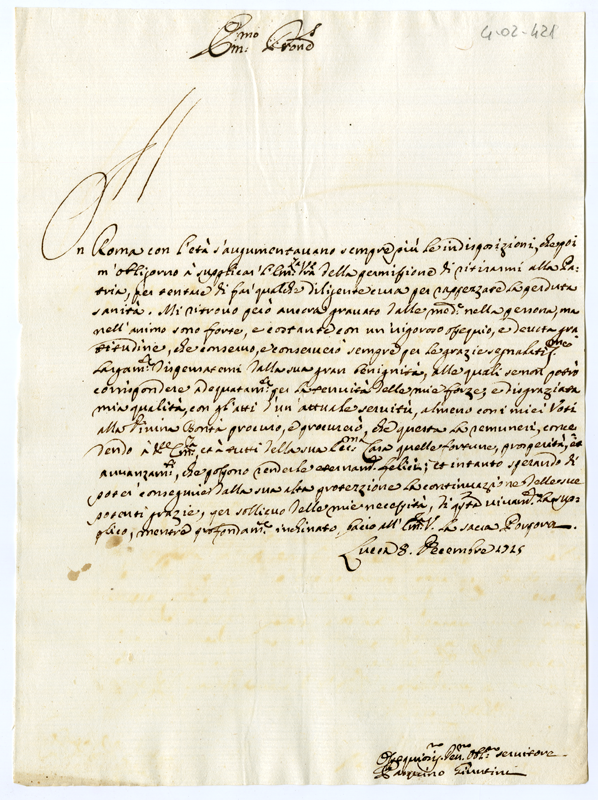 Em.mo
4-02-421
In Roma con l'età s'augumentauano sempre più le indisposizioni, che poi
m'obligorno à supplicar l'Em.za V.ra della permissione di ritirarmi alla Pa-
tria, per tentar di far qualche diligente cura per rappezzare la perduta
sanità. Mi ritrouo però ancora grauato dalle med.e nella persona, ma
nell'animo sono forte, e costante con un rigoroso ossequio, e deuota gra-
titudine, che conseruo, e conseruerò sempre per le grazie segnalatiss.me
dispensatemi dalla sua gran benignità, alle quali se non potrò
corrispondere adequatam.te per la tenuità delle mie forze, e disgraziata
mia qualità, con gli atti d'un attuale seruitù, almeno con i miei Voti
alla Diuina Bontà procuro, e procurerò, che questa La remuneri, conce-
dendo à V.ra Em.za et à tutti della sua Ecc.ma Casa quelle fortune, prosperità, et
auuanzam.ti, che possono renderle eternam.te felici; et intanto sperando di
poter conseguir dalla sua alta protezzione la continuazione delle sue
potenti grazie, per solliuo delle mie necessità, di q.to uiuam.te La sup-
plico, mentre profondam.te inchinato, bacio all'Em.za V. la sacra Porpora.
Lucca 8. Decembre 1715
Ossequiosiss.mo Deu.mo Obl.mo seruitore